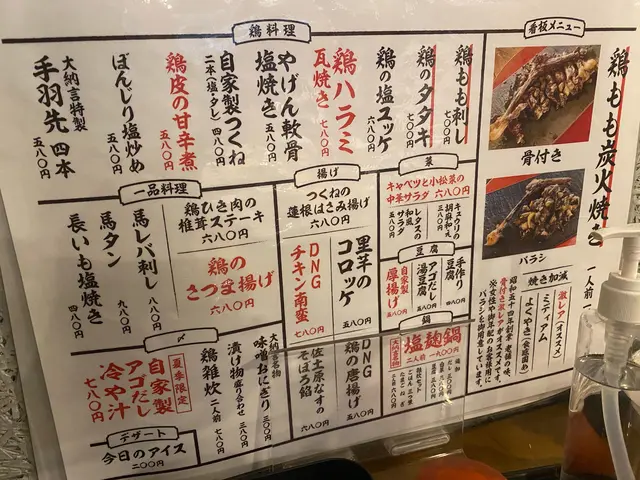 看板メニュー
鶏もも炭火焼き
一人前
骨付き
バラシ
焼き加減
激レア(オススメ)
ミディアム
よくやき
昭和五十四年創業 老舗の味。
骨付き激レアがオススメです。
バラシを御用意しています。
鶏料理
鶏もも刺し
七〇〇円
鶏のタタキ
七〇〇円
鶏の塩ユッケ
六八〇円
鶏ハラミ
瓦焼き
七八〇円
やげん軟骨
塩焼き
五八〇円
自家製つくね
二本(塩・タレ)
四八〇円
鶏皮の甘辛煮
五八〇円
ぼんじり塩炒め
五八〇円
大納言特製
手羽先 四本
五八〇円
菜
キャベツと小松菜の
中華サラダ 六八〇円
キュウリの
胡麻和え
三八〇円
レタスの
和風
サラダ
五八〇円
豆腐
手作り
豆腐
四八〇円
アゴだし
湯豆腐
五八〇円
自家製
厚揚げ
五八〇円
鍋
大納言名物
塩麹鍋
二人前 一九〇〇円
揚げ
つくねの
蓮根はさみ揚げ
六八〇円
里芋の
コロッケ
五八〇円
DNG
チキン南蛮
七八〇円
DNG
鶏の唐揚げ
五八〇円
佐土原なすの
そぼろ餡
六八〇円
一品料理
鶏ひき肉の
椎茸ステーキ
六八〇円
鶏の
さつま揚げ
六八〇円
馬レバ刺し
八八〇円
馬タン
九八〇円
長いも塩焼き
四八〇円
〆
大納言名物
味噌おにぎり
三〇〇円
漬け物盛り合わせ
三八〇円
鶏雑炊
二人前
七八〇円
夏季限定
自家製
アゴだし
冷や汁
七八〇円
デザート
今日のアイス
二〇〇円